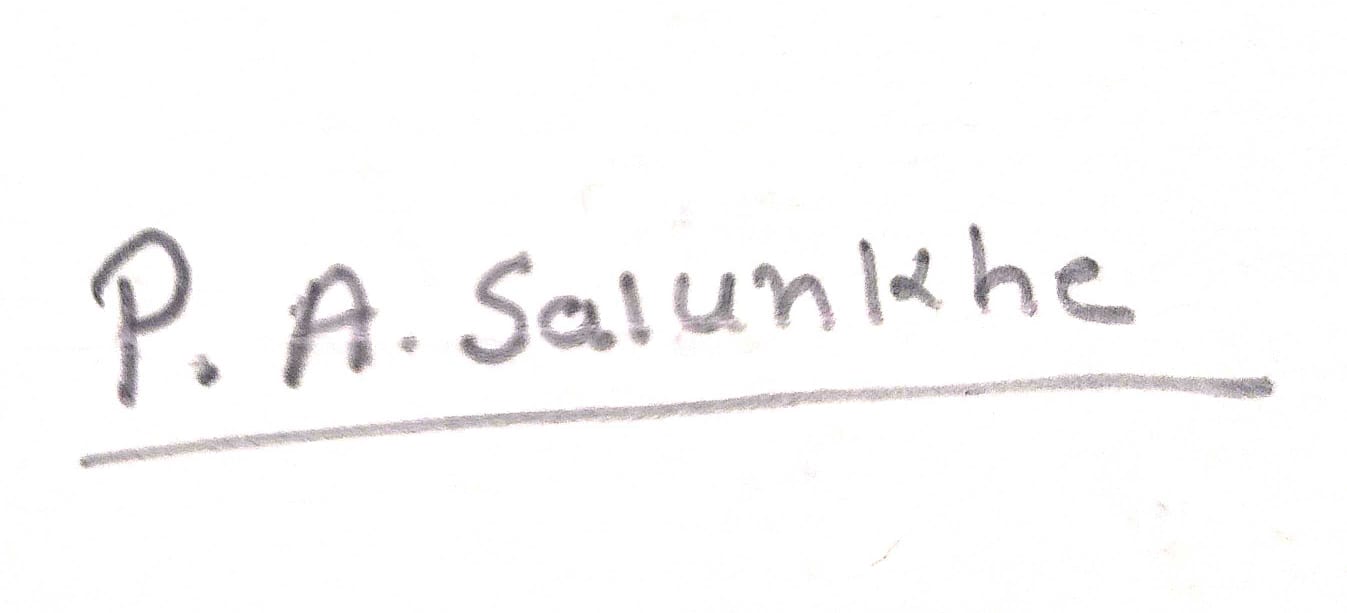 P. A. Salunkhe